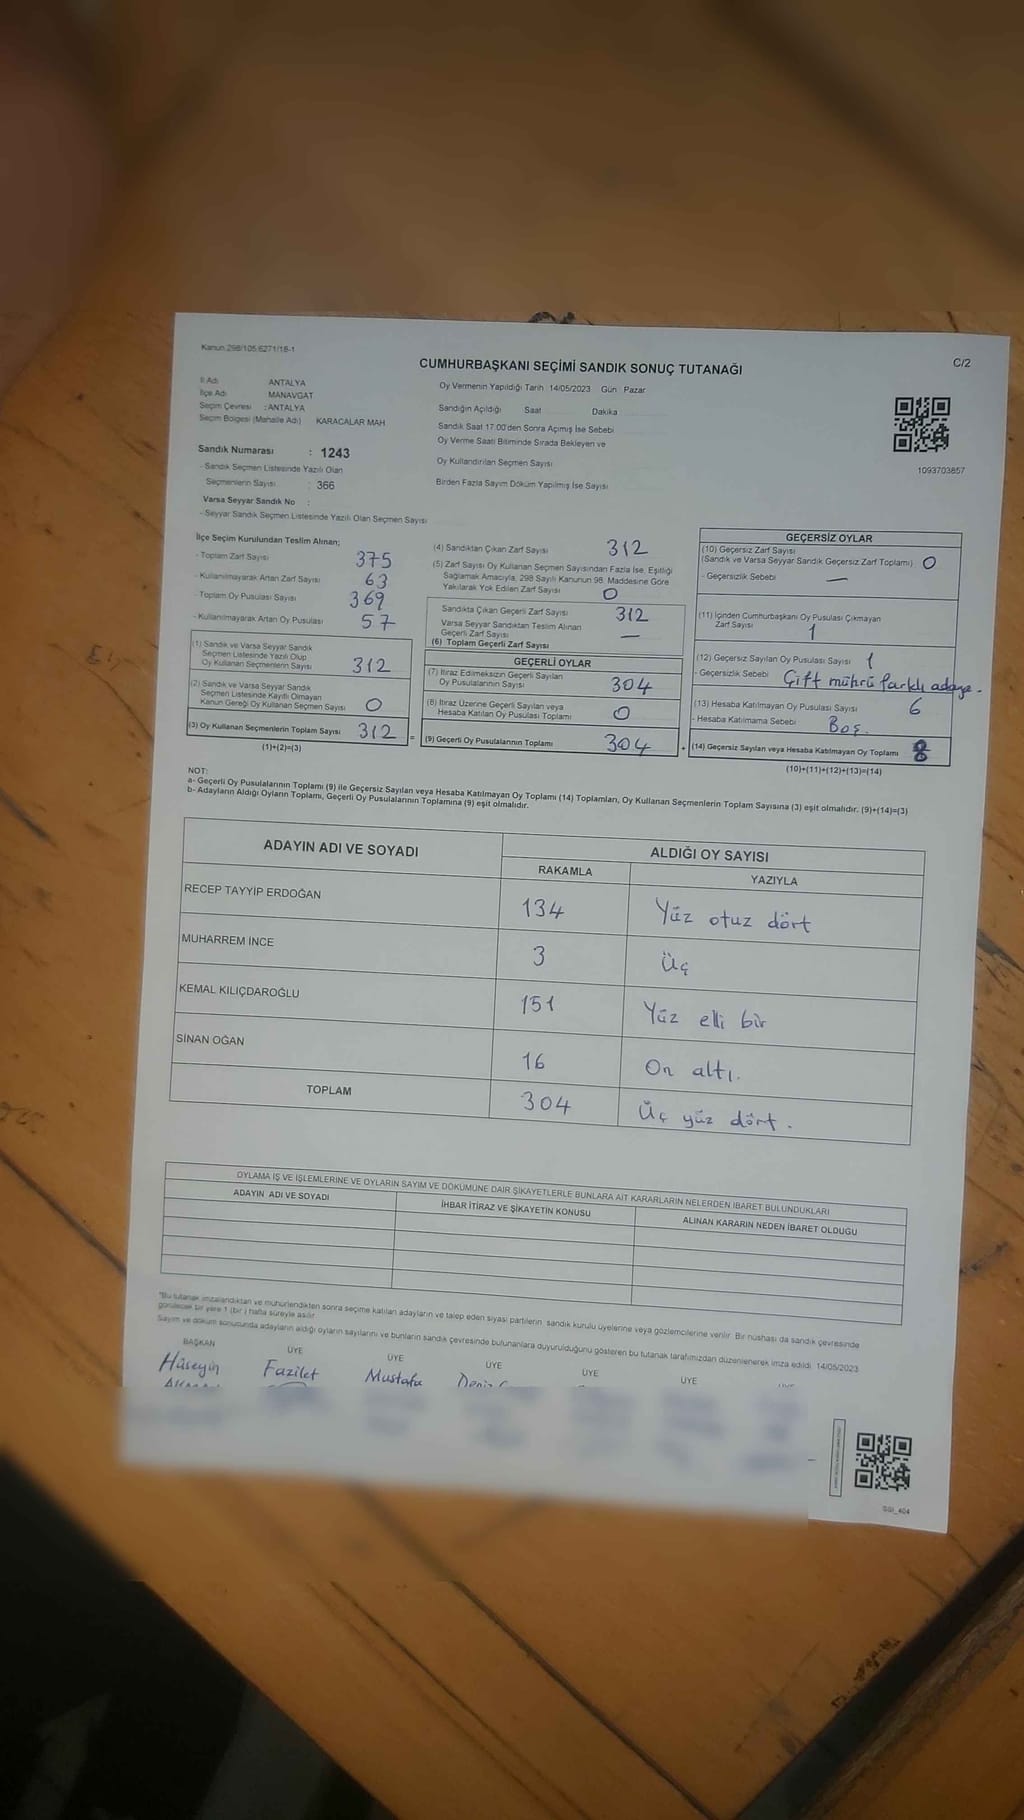 Kanun 298/105 6271/18-1
C/2
CUMHURBAŞKANI SEÇİMİ SANDIK SONUÇ TUTANAĞI
İl Adı ANTALYA
İlçe Adı MANAVGAT
Seçim Çevresi : ANTALYA
Seçim Bölgesi (Mahalle Adı) KARACALAR MAH.
Sandık Numarası : 1243
- Sandık Seçmen Listesinde Yazılı Olan
Seçmenlerin Sayısı : 366
Varsa Seyyar Sandık No :
- Seyyar Sandık Seçmen Listesinde Yazılı Olan Seçmen Sayısı
Oy Vermenin Yapıldığı Tarih 14/05/2023 Gün Pazar
Sandığın Açıldığı Saat Dakika
Sandık Saat 17.00'den Sonra Açımış İse Sebebi
Oy Verme Saati Bitiminde Sırada Bekleyen ve
Oy Kullandırılan Seçmen Sayısı
Birden Fazla Sayım Döküm Yapılmış İse Sayısı
1093703857
İlçe Seçim Kurulundan Teslim Alınan;
- Toplam Zarf Sayısı 375
- Kullanılmayarak Artan Zarf Sayısı 63
- Toplam Oy Pusulası Sayısı 369
- Kullanılmayarak Artan Oy Pusulası 57
(1) Sandık ve Varsa Seyyar Sandık
Seçmen Listesinde Yazılı Olup
Oy Kullanan Seçmenlerin Sayısı 312
(2) Sandık ve Varsa Seyyar Sandık
Seçmen Listesinde Kayıtlı Olmayan
Kanun Gereği Oy Kullanan Seçmen Sayısı 0
(3) Oy Kullanan Seçmenlerin Toplam Sayısı 312 =
(1)+(2)=(3)
(4) Sandıktan Çıkan Zarf Sayısı 312
(5) Zarf Sayısı Oy Kullanan Seçmen Sayısından Fazla İse, Eşitliği
Sağlamak Amacıyla, 298 Sayılı Kanunun 98. Maddesine Göre
Yakılarak Yok Edilen Zarf Sayısı 0
Sandıkta Çıkan Geçerli Zarf Sayısı 312
Varsa Seyyar Sandıktan Teslim Alınan
Geçerli Zarf Sayısı —
(6) Toplam Geçerli Zarf Sayısı
GEÇERLİ OYLAR
(7) İtiraz Edilmeksizin Geçerli Sayılan
Oy Pusulalarının Sayısı 304
(8) İtiraz Üzerine Geçerli Sayılan veya
Hesaba Katılan Oy Pusulası Toplamı 0
(9) Geçerli Oy Pusulalarının Toplamı 304 +
GEÇERSİZ OYLAR
(10) Geçersiz Zarf Sayısı
(Sandık ve Varsa Seyyar Sandık Geçersiz Zarf Toplamı) 0
- Geçersizlik Sebebi —
(11) İçinden Cumhurbaşkanı Oy Pusulası Çıkmayan
Zarf Sayısı 1
(12) Geçersiz Sayılan Oy Pusulası Sayısı 1
- Geçersizlik Sebebi Çift mührü farklı adaya.
(13) Hesaba Katılmayan Oy Pusulası Sayısı 6
- Hesaba Katılmama Sebebi Boş.
(14) Geçersiz Sayılan veya Hesaba Katılmayan Oy Toplamı 8
(10)+(11)+(12)+(13)=(14)
NOT:
a- Geçerli Oy Pusulalarının Toplamı (9) ile Geçersiz Sayılan veya Hesaba Katılmayan Oy Toplamı (14) Toplamları, Oy Kullanan Seçmenlerin Toplam Sayısına (3) eşit olmalıdır. (9)+(14)=(3)
b- Adayların Aldığı Oyların Toplamı, Geçerli Oy Pusulalarının Toplamına (9) eşit olmalıdır.
ADAYIN ADI VE SOYADI ALDIĞI OY SAYISI
RAKAMLA YAZIYLA
RECEP TAYYİP ERDOĞAN 134 Yüz otuz dört
MUHARREM İNCE 3 Üç
KEMAL KILIÇDAROĞLU 151 Yüz elli bir
SİNAN OĞAN 16 On altı.
TOPLAM 304 Üç yüz dört.
OYLAMA İŞ VE İŞLEMLERİNE VE OYLARIN SAYIM VE DÖKÜMÜNE DAİR ŞİKAYETLERLE BUNLARA AİT KARARLARIN NELERDEN İBARET BULUNDUKLARI
ADAYIN ADI VE SOYADI İHBAR İTİRAZ VE ŞİKAYETİN KONUSU ALINAN KARARIN NEDEN İBARET OLDUĞU
*Bu tutanak imzalandıktan ve mühürlendikten sonra seçime katılan adayların ve talep eden siyasi partilerin sandık kurulu üyelerine veya gözlemcilerine verilir. Bir nüshası da sandık çevresinde
görülecek bir yere 1 (bir ) hafta süreyle asılır
Sayım ve döküm sonucunda adayların aldığı oyların sayılarını ve bunların sandık çevresinde bulunanlara duyurulduğunu gösteren bu tutanak tarafımızdan düzenlenerek imza edildi. 14/05/2023
BAŞKAN ÜYE ÜYE ÜYE ÜYE ÜYE
Hüseyin Fazilet Mustafa Deniz
SGI_404